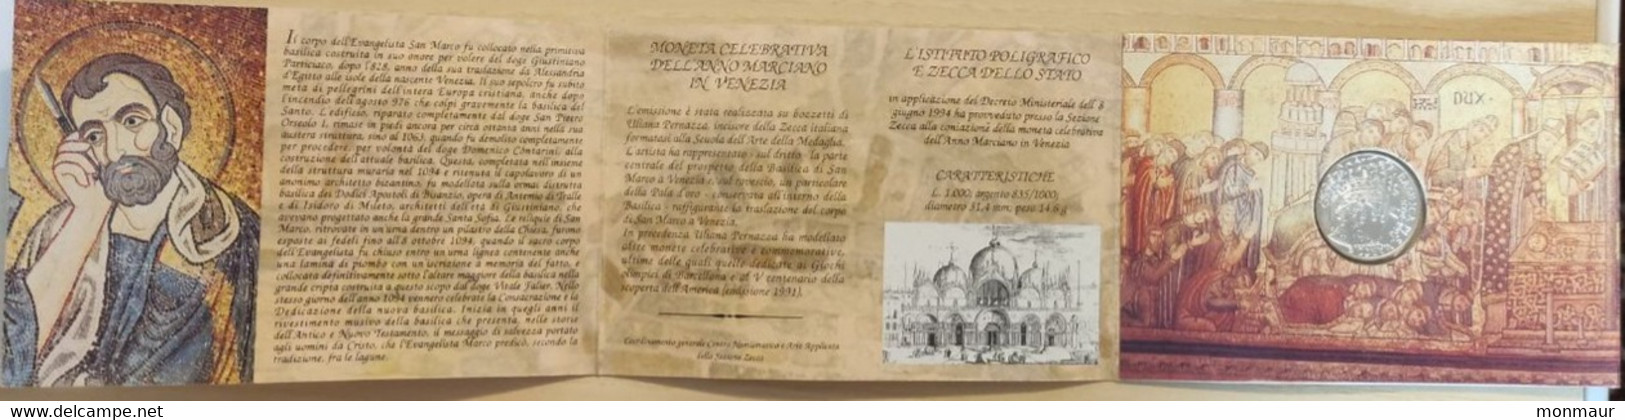 Il corpo dell'Evangelista San Marco fu collocato nella primitiva
basilica costruita in suo onore per volere del doge Giustiniano
Particiaco, dopo l'828, anno della sua traslazione da Alessandria
d'Egitto alle isole della nascente Venezia. Il suo sepolcro fu subito
meta di pellegrini dell'intera Europa cristiana, anche dopo
l'incendio dell'agosto 976 che colpì gravemente la basilica del
Santo. L'edificio, riparato completamente dal doge San Pietro
Orseolo I, rimase in piedi ancora per circa ottanta anni nella sua
austera struttura, sino al 1063, quando fu demolito completamente
per procedere, per volontà del doge Domenico Contarini, alla
costruzione dell'attuale basilica. Questa, completata nell'insieme
della struttura muraria nel 1094 e ritenuta il capolavoro di un
anonimo architetto bizantino, fu modellata sulla ormai distrutta
basilica dei Dodici Apostoli di Bisanzio, opera di Antemio di Tralle
e di Isidoro di Mileto, architetti dell'età di Giustiniano, che
avevano progettato anche la grande Santa Sofia. Le reliquie di San
Marco, ritrovate in un'urna dentro un pilastro della Chiesa, furono
esposte ai fedeli fino all'8 ottobre 1094, quando il sacro corpo
dell'Evangelista fu chiuso entro un'urna lignea contenente anche
una lamina di piombo con un'iscrizione a memoria del fatto, e
collocata definitivamente sotto l'altare maggiore della basilica nella
grande cripta costruita a questo scopo dal doge Vitale Falier. Nello
stesso giorno dell'anno 1094 vennero celebrate la Consacrazione e la
Dedicazione della nuova basilica. Inizia in quegli anni il
rivestimento musivo della basilica che presenta, nelle storie
dell'Antico e Nuovo Testamento, il messaggio di salvezza portato
agli uomini da Cristo, che l'Evangelista Marco predicò, secondo la
tradizione, fra le lagune.
MONETA CELEBRATIVA
DELL'ANNO MARCIANO
IN VENEZIA
L'emissione è stata realizzata su bozzetti di
Uliana Pernazza, incisore della Zecca italiana
formatasi alla Scuola dell'Arte della Medaglia.
L'artista ha rappresentato - sul dritto - la parte
centrale del prospetto della Basilica di San
Marco a Venezia e, sul rovescio, un particolare
della Pala d'oro - conservata all'interno della
Basilica - raffigurante la traslazione del corpo
di San Marco a Venezia.
In precedenza Uliana Pernazza ha modellato
altre monete celebrative e commemorative,
ultime delle quali quelle dedicate ai Giochi
olimpici di Barcellona e al V centenario della
scoperta dell'America (emissione 1991).
Coordinamento generale Centro Numismatico e Arte Applicata
della Sezione Zecca
L'ISTITUTO POLIGRAFICO
E ZECCA DELLO STATO
in applicazione del Decreto Ministeriale dell'8
giugno 1994 ha provveduto presso la Sezione
Zecca alla coniazione della moneta celebrativa
dell'Anno Marciano in Venezia
CARATTERISTICHE
L. 1.000; argento 835/1000;
diametro 31,4 mm; peso 14,6 g
DUX
www.delcampe.net
monmaur